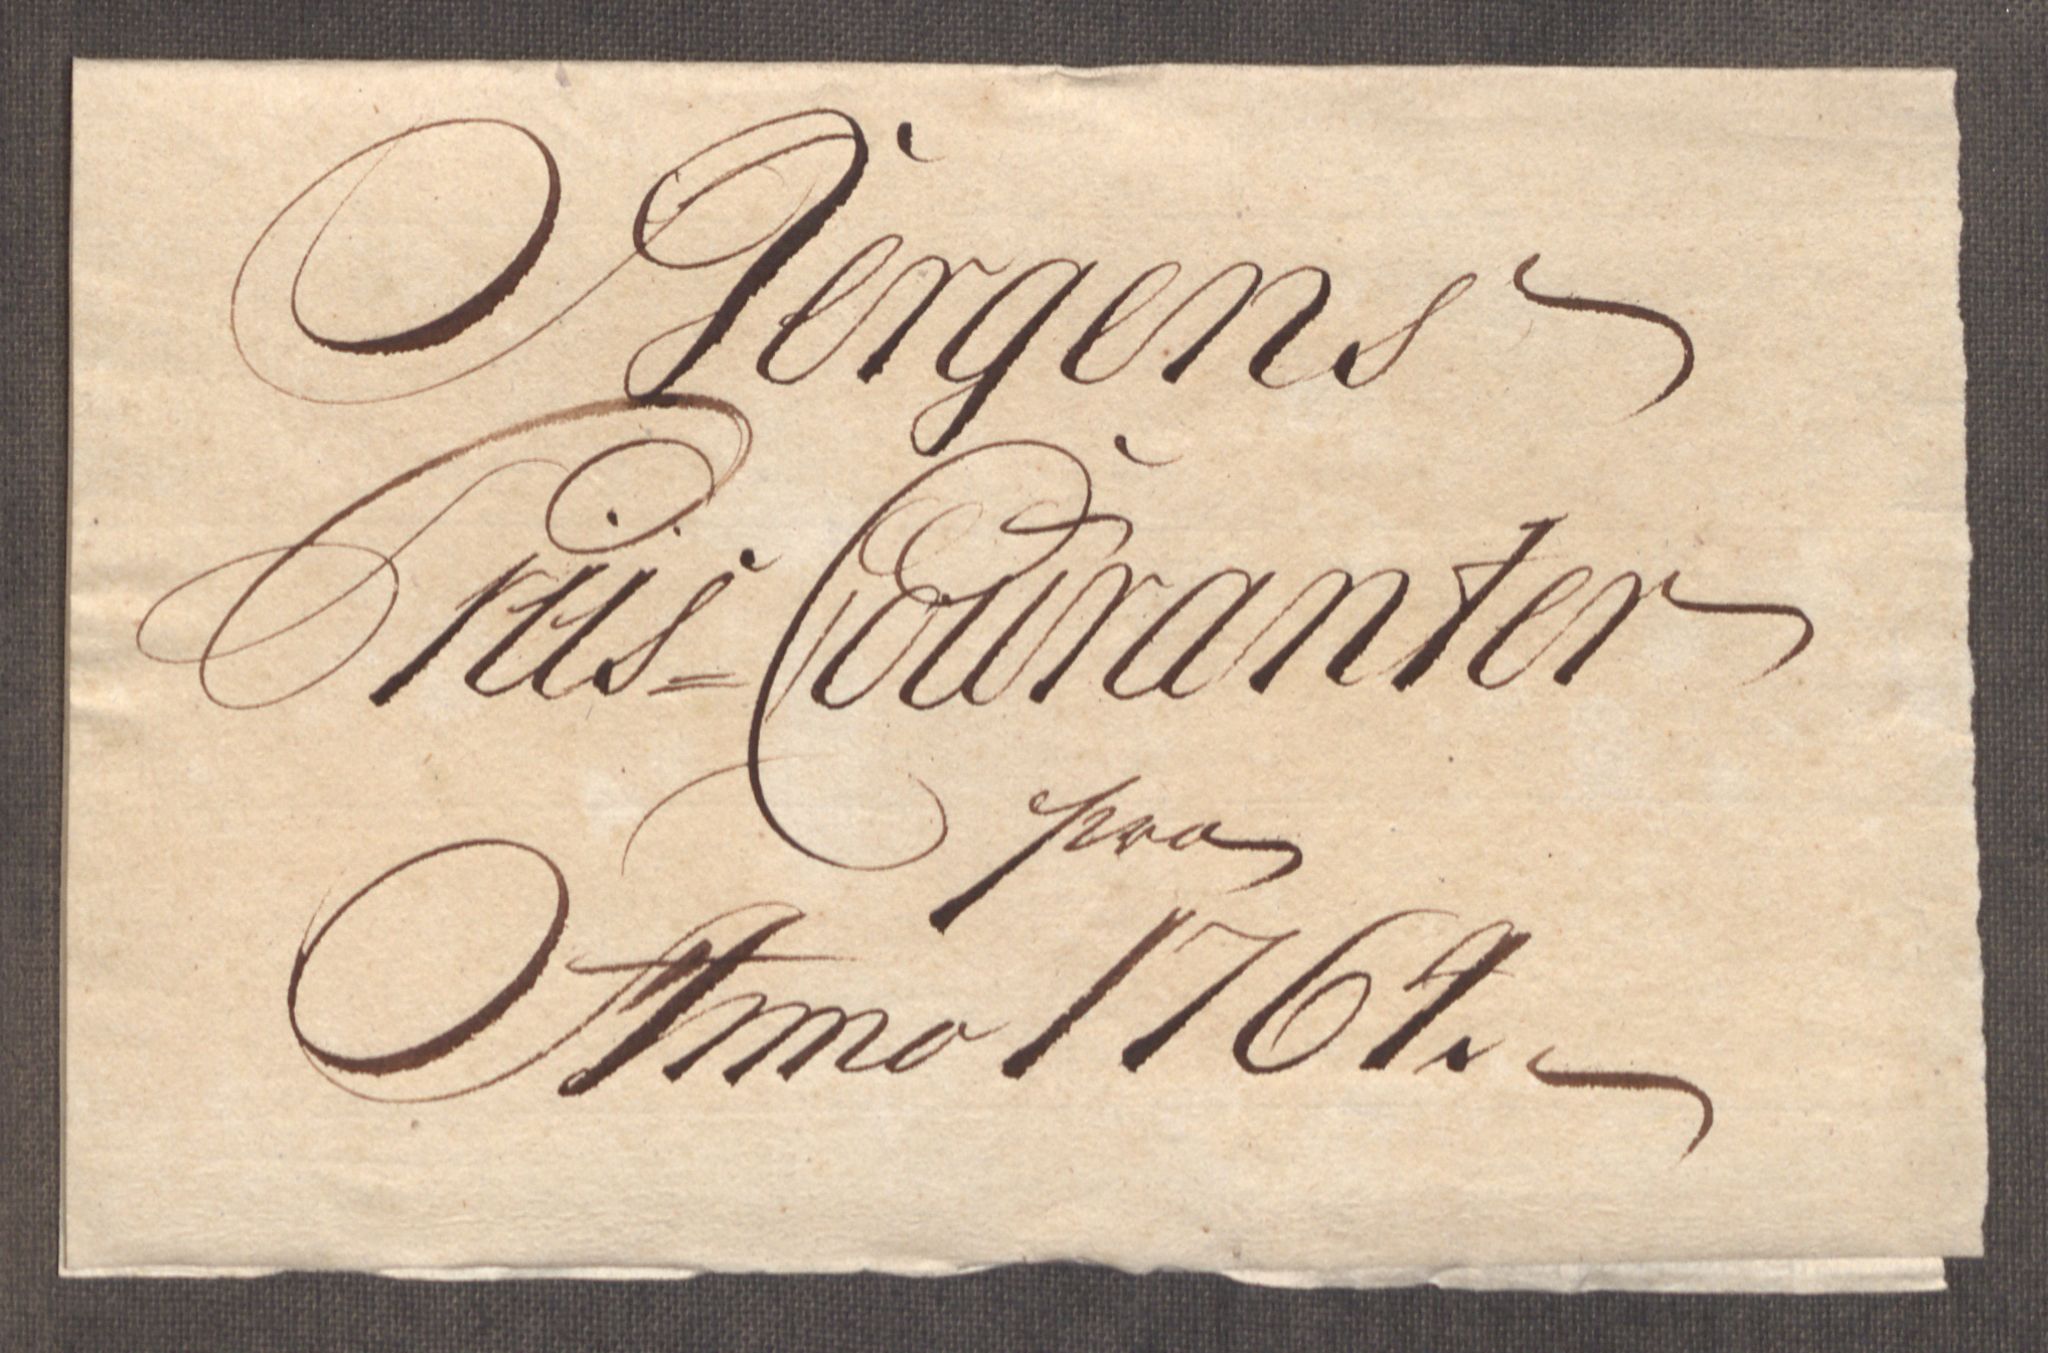 Bergens
Priis-Couranter
pro
Anno 1764.